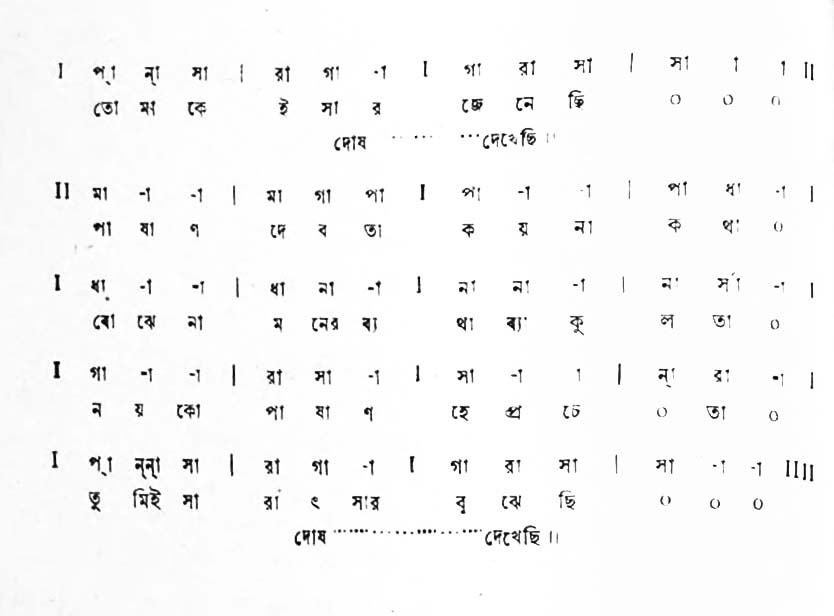 I প্া ন্া সা | রা গা -া I গা রা সা | সা া া II
তো মা কে ই সা র জে নে ছি ০ ০ ০
দোষ ············দেখেছি॥
II মা -া -া | মা গা পা I পা -া -া | পা ধা -া I
পা ষা ণ দে ব তা ক য় না ক থা ০
I ধা -া -া | ধা না -া I না না -া | না র্সা -া I
বো ঝে না ম নের ব্য থা ব্যা কু ল তা ০
I গা -া -া | রা সা -া I সা -া া | ন্া রা -া I
ন য় কো পা ষা ণ হে প্র চে ০ তা ০
I প্া ন্ন্া সা | রা গা -া I গা রা সা | সা -া -া IIII
তু মিই সা রা ৎ সার বু ঝে ছি ০ ০ ০
দোষ ····················দেখেছি॥